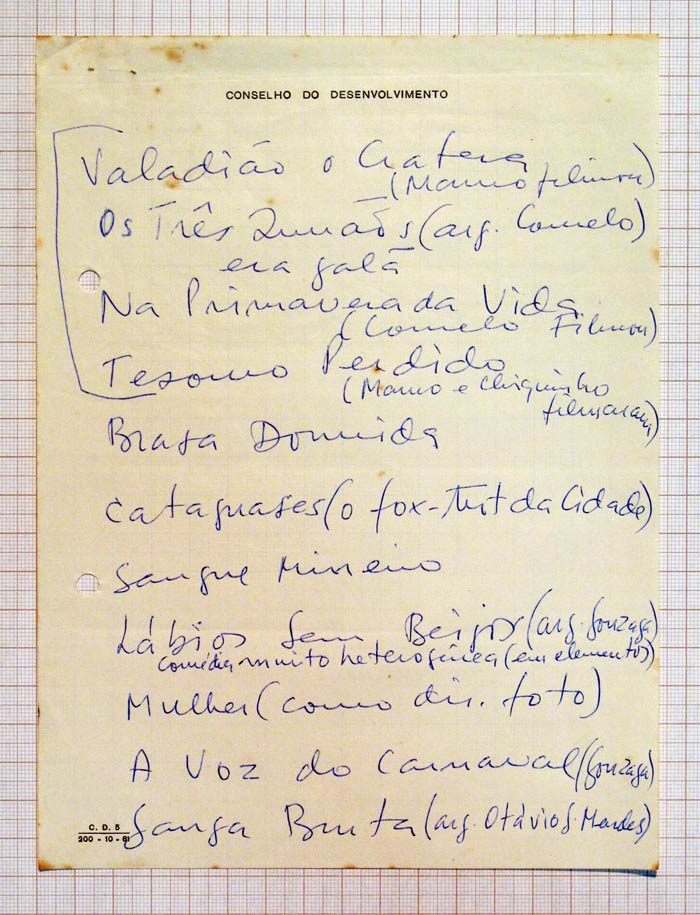 CONSELHO DO DESENVOLVIMENTO
Valadião o Cratera
(Mauro filmou)
Os Três Irmãos (arg. Comelo)
era galã
Na Primavera da Vida
(Comelo Filmou)
Tesouro Perdido
(Mauro e Chiquinho
filmaram)
Brasa Dormida
Cataguases (o fox-trot da Cidade)
Sangue Mineiro
Lábios Sem Beijos (arg. Gonzaga)
comédia muito heterogênea (em elementos)
Mulher (como dir. foto)
A Voz do Carnaval (Gonzaga)
Ganga Bruta (arg. Otávio G. Mendes)
C. D. 5
200 - 10 - 61